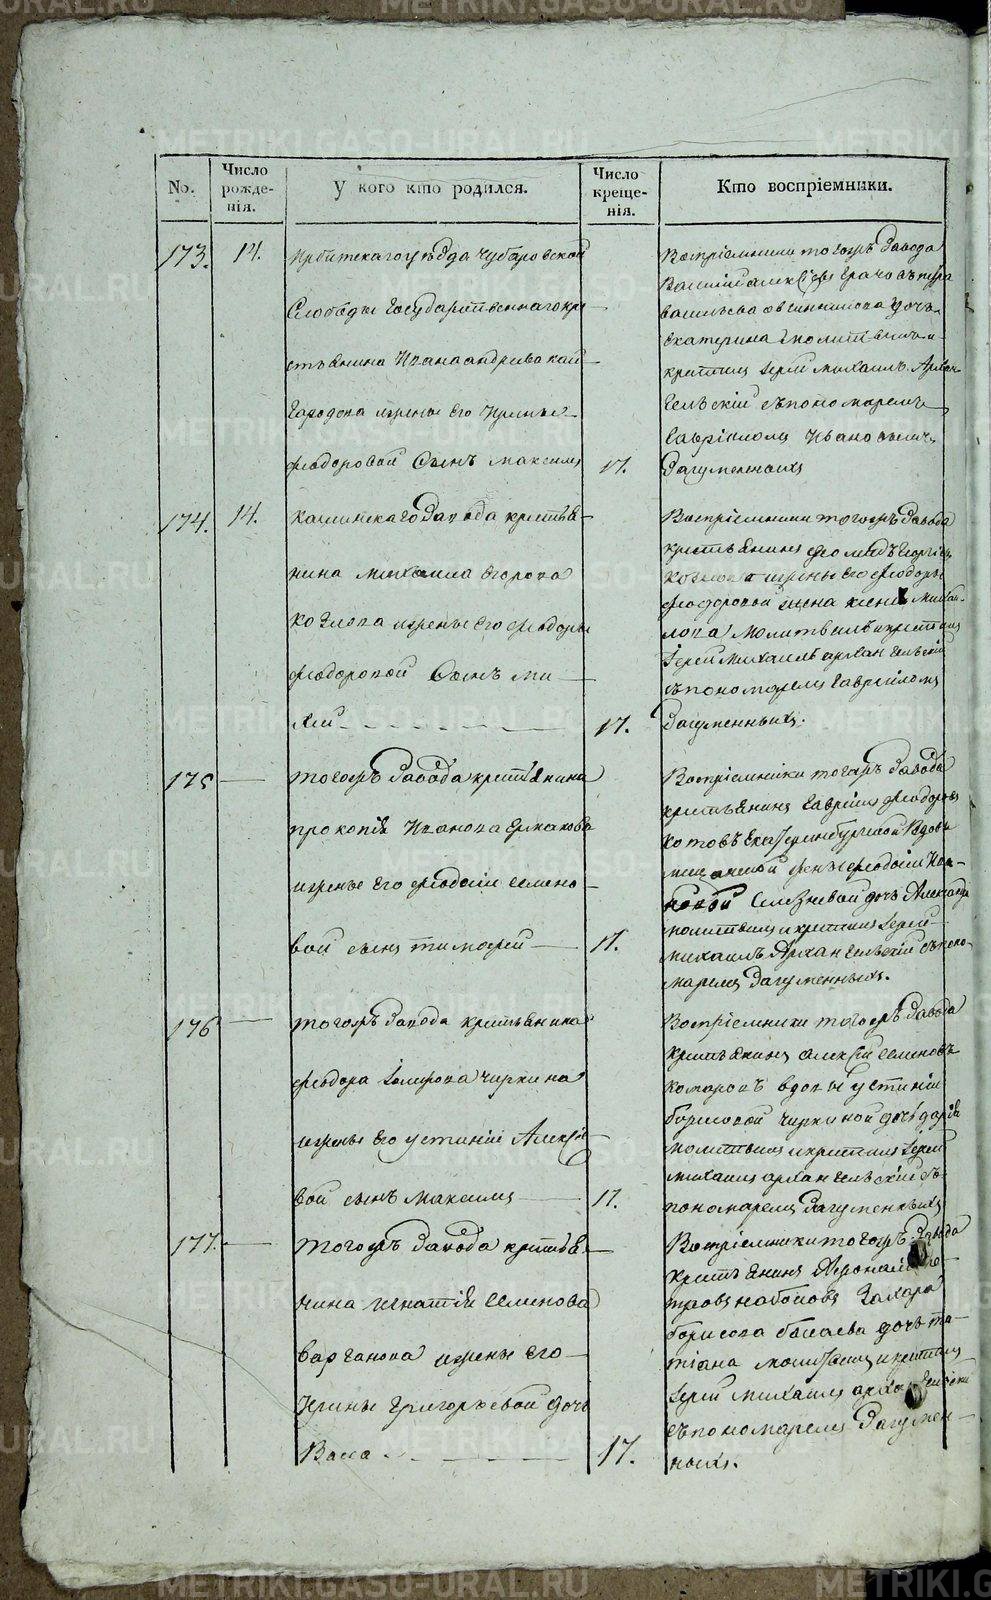 METRIKI.GASO-URAL.RU
No.
Число рожде-нія.
У кого кто родился.
Число креще-нія.
Кто воспріемники.
173.
14.
Ирбитскаго уѣзда Чубаровской
Слободы Государственнаго кре
стьянина Ивана Андріева Кай
городова и жены его Ирины
Феодоровой Сынъ Максимъ
17.
Воспріемники тогожъ завода
Василій Алексѣевъ
васильева овчинникова дочь
Екатерина молитвилъ и
крестилъ Іерей Михаилъ Архан
гельскій съ пономаремъ
Гавріиломъ Ивановымъ
Загуменныхъ
174.
14.
Каслинскаго Завода крестья-
нина Михаила Егорова
Козлова и жены его Феодоры
Феодоровой Сынъ Ми
хей
17.
Воспріемники тогожъ завода
крестьянинъ Георгіевъ
Козловъ и жены его Феодоры
Феодоровой Михай-
лова молитвилъ и крестилъ
Іерей Михаилъ архангельскій
съ пономаремъ Гавріиломъ
Загуменныхъ.
175
тогожъ завода крестьянина
Прокопія Иванова Ермакова
и жены его Феодосіи Семено
вой сынъ Тимофей
17.
Воспріемники тогожъ завода
крестьянинъ Гавріилъ Феодоровъ
Котовъ Екатеринбургской вдовы
мещанской Феодосіи
Селезневой дочь Александра
молитвилъ и крестилъ Іерей
михаилъ Архангельскій съ поно-
маремъ Загуменныхъ.
176
тогожъ завода крестьянина
Феодора Чиркина
и жены его устиніи Алексѣе
вой сынъ Максимъ
17.
Воспріемники тогожъ завода
крестьянинъ алексѣй Семеновъ
комаровъ вдовы устиніи
борисовой Чиркиной дочь дарія
молитвилъ и крестилъ Іерей
михаилъ архангельскій съ
пономаремъ Загуменныхъ
177.
тогожъ Завода крестья
нина Игнатія Семенова
Варганова и жены его
Ирины Григорьевой дочь
Васса
17.
Воспріемники тогожъ Завода
крестьянинъ
Захара
борисова дочь та
тіана молитвилъ и крестилъ
Іерей Михаилъ архангельскій
съ пономаремъ Загумен
ныхъ.